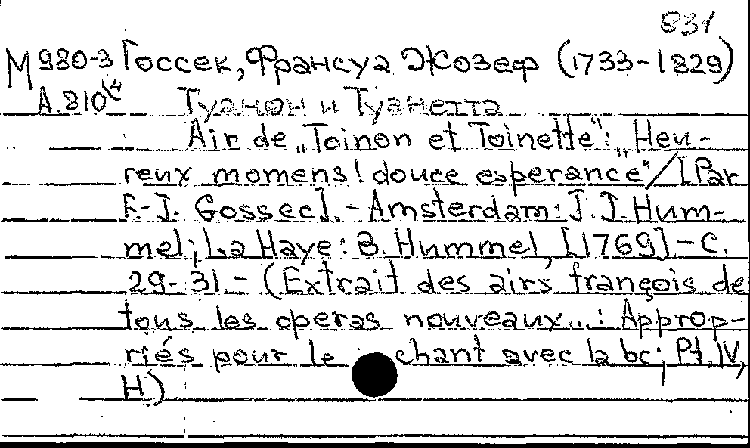 831
М 980-3 Госсек, Франсуа Жозеф (1733-1829)
А.810 Туанон и Туанетта
Air de „Toinon et Toinette": „Heu-
reux momens! douce esperance"/[Par
F.-J. Gossec]. - Amsterdam: J. J. Hum-
mel; La Haye: B. Hummel, [1769] - С.
29-31. - (Extrait des airs françois de
tous les operas nouveaux...: Approp-
riés pour le chant avec la bc; Pt. IV,
H)